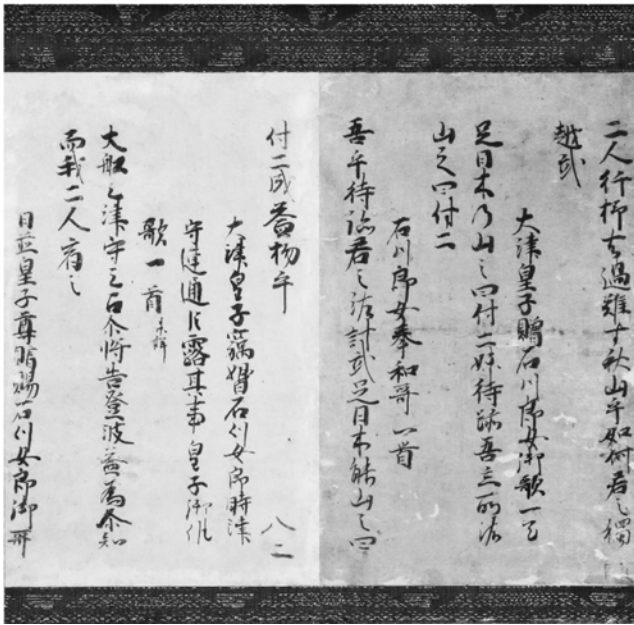 二人行杼去過難寸秋山乎如何君之獨
越武
大津皇子贈石川郎女御歌一首
足日木乃山之四付二妹待跡吾立所沾
山之四付二
石川郎女奉和哥一首
吾乎待跡君之沾計武足日木能山之四
付二成益物乎
八二
大津皇子竊婚石川女郎時津
守連通占露其事皇子御作
歌一首 未詳
大船之津守之占尓将告登波益為尓知
而我二人宿之
日並皇子尊贈賜石川女郎御哥